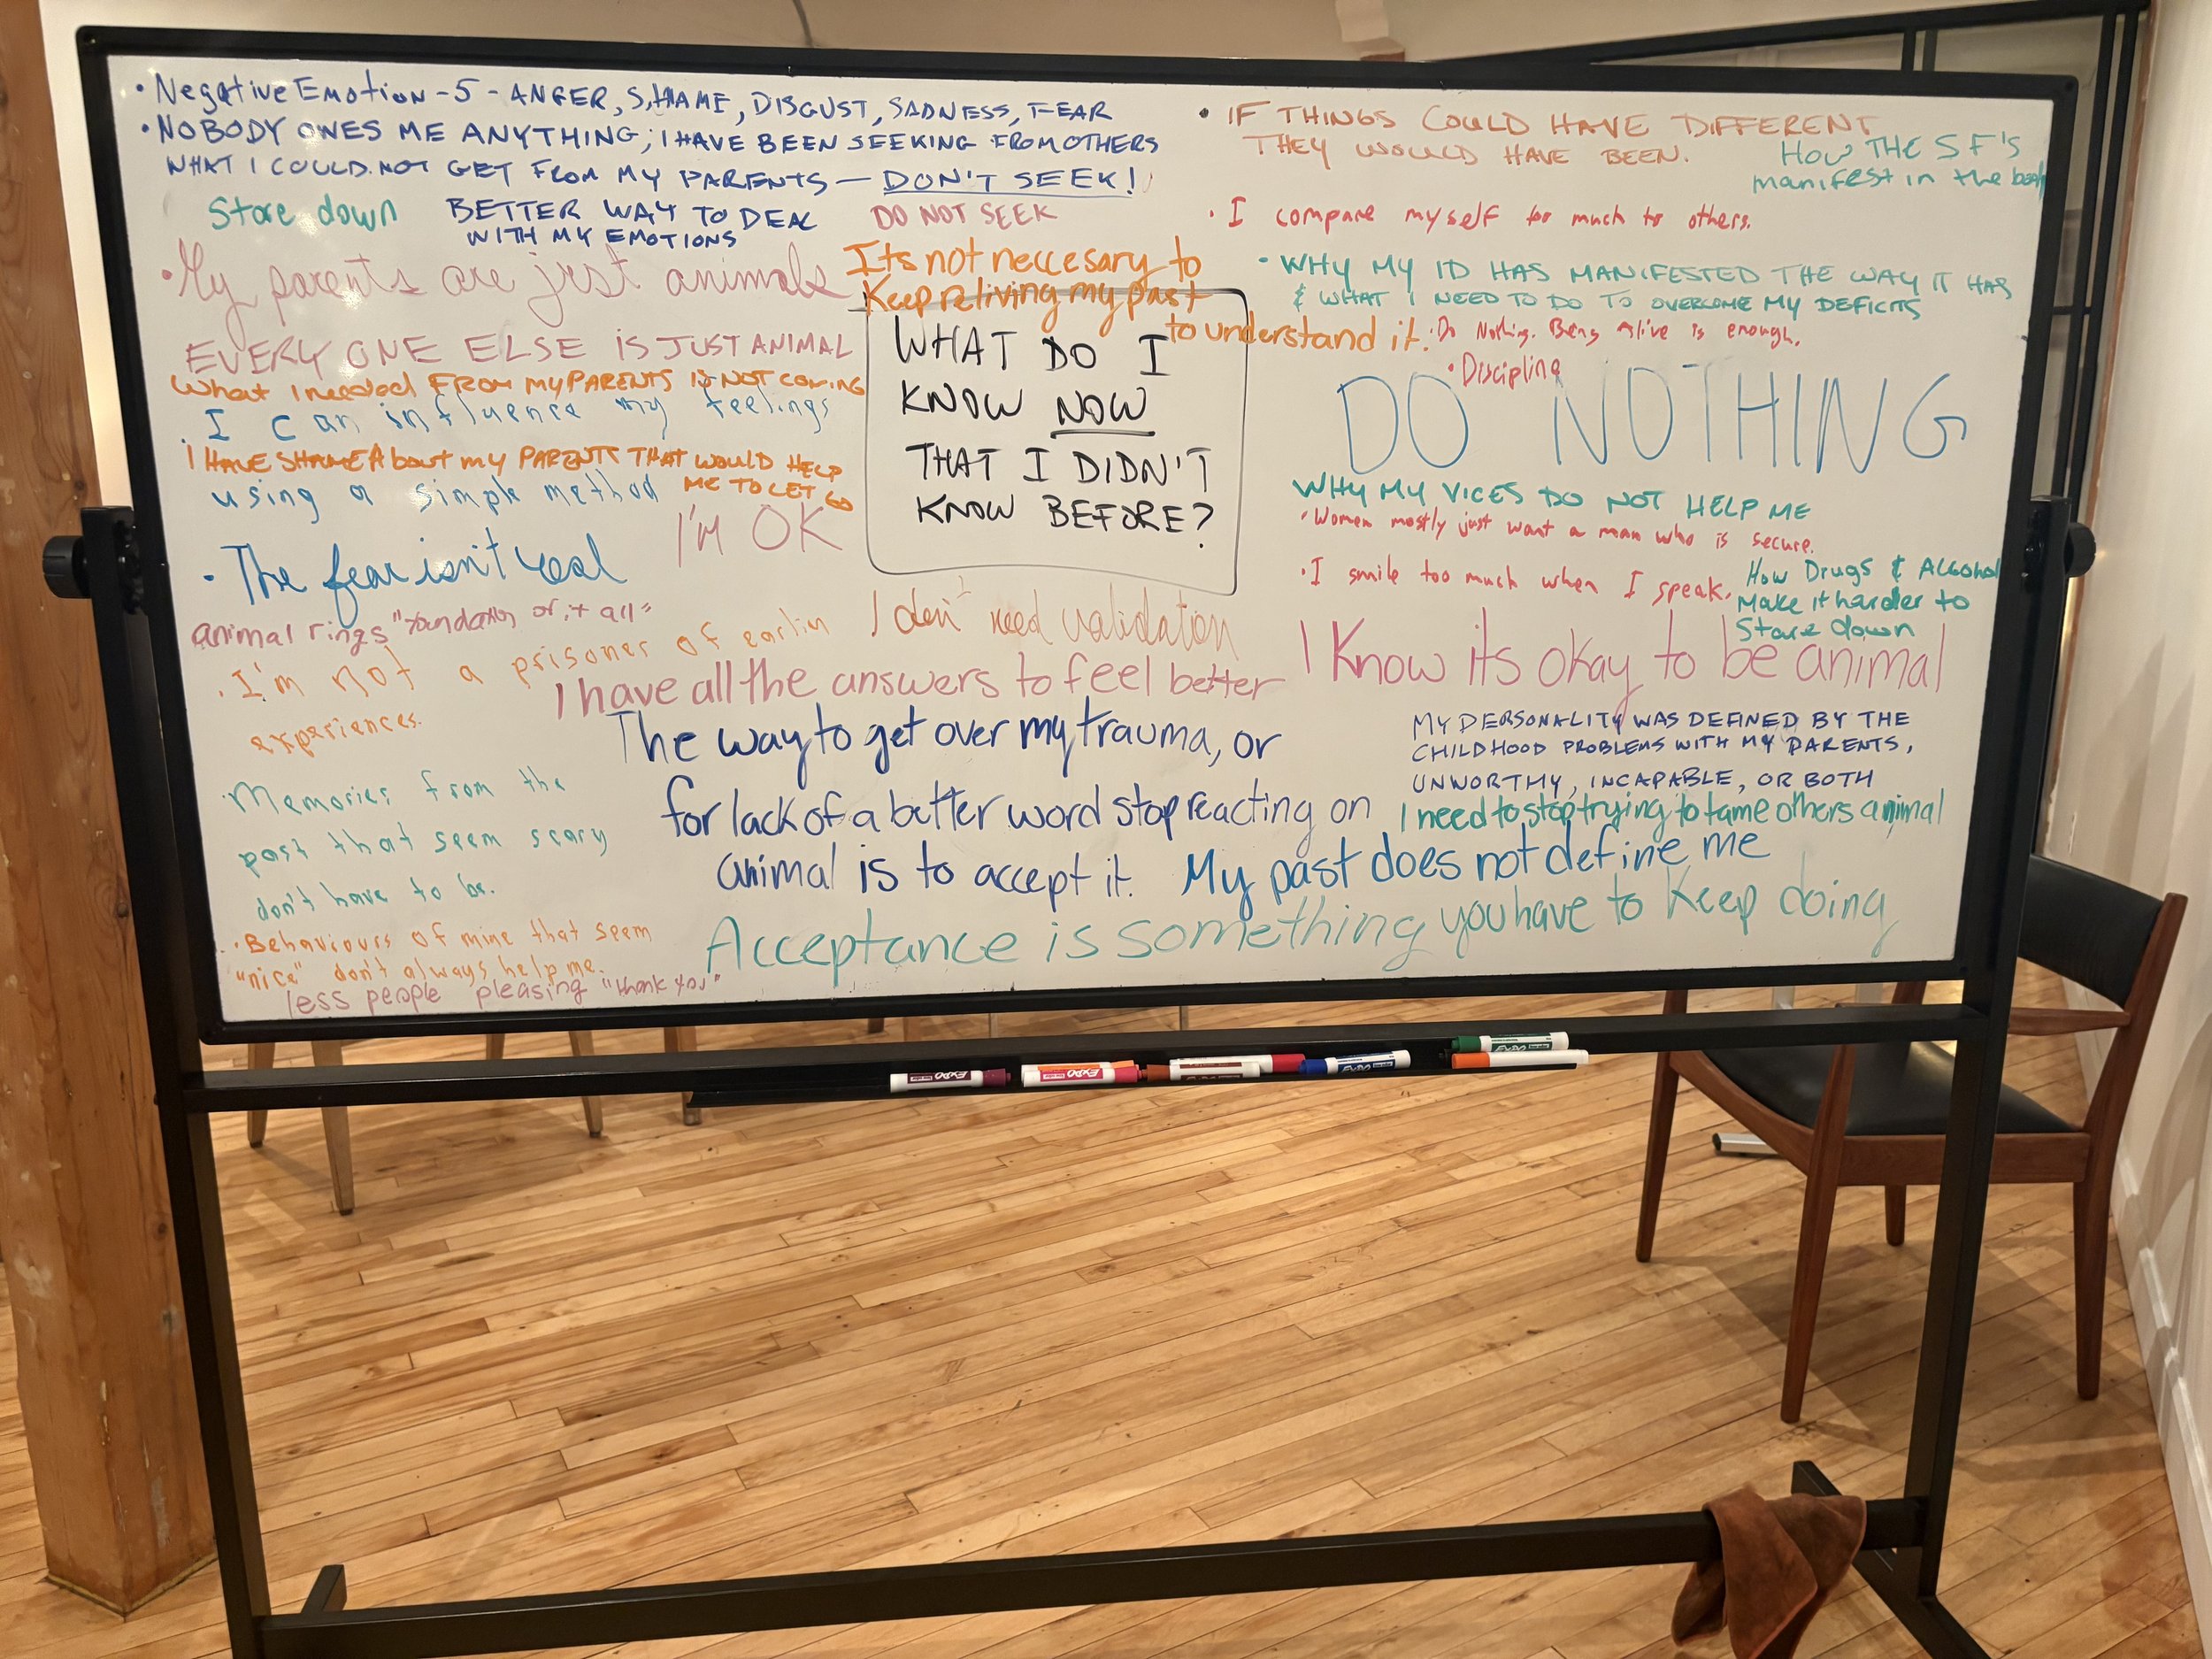 • Negative Emotion - 5 - ANGER, SHAME, DISGUST, SADNESS, FEAR
• NOBODY OWES ME ANYTHING; I HAVE BEEN SEEKING FROM OTHERS
WHAT I COULD NOT GET FROM MY PARENTS — DON'T SEEK!
Stare down
BETTER WAY TO DEAL
WITH MY EMOTIONS
DO NOT SEEK
• My parents are just animals
EVERY ONE ELSE IS JUST ANIMAL
What I needed FROM MY PARENTS IS NOT COMING
. I can influence my feelings
I HAVE SHAME About my PARENTS THAT WOULD HELP
ME TO LET GO
using a simple method
I'M OK
• The fear isn't real
animal rings "foundation of it all"
. I'm not a prisoner of earlier
experiences.
. Memories from the
past that seem scary
don't have to be.
. Behaviours of mine that seem
"nice" don't always help me.
less people pleasing "thank you"
Its not neccesary to
Keep reliving my past
to understand it.
WHAT DO I
KNOW NOW
THAT I DIDN'T
KNOW BEFORE?
I don't need validation
I have all the answers to feel better
The way to get over my trauma, or
for lack of a better word stop reacting on
animal is to accept it.
My past does not define me
Acceptance is something you have to keep doing
• IF THINGS COULD HAVE DIFFERENT
THEY WOULD HAVE BEEN.
How THE SF'S
manifest in the body
. I compare myself for much to others.
• WHY MY ID HAS MANIFESTED THE WAY IT HAS
& WHAT I NEED TO DO TO OVERCOME MY DEFICITS
. Do Nothing. Being Alive is enough.
• Discipline
DO NOTHING
WHY MY VICES DO NOT HELP ME
• Women mostly just want a man who is secure.
• I smile too much when I speak.
How Drugs & Alcohol
Make it harder to
Stare down
I Know its okay to be animal
MY PERSONALITY WAS DEFINED BY THE
CHILDHOOD PROBLEMS WITH MY PARENTS,
UNWORTHY, INCAPABLE, OR BOTH
I need to stop trying to tame others animal
EXPO
EXPO
EXPO
EXPO